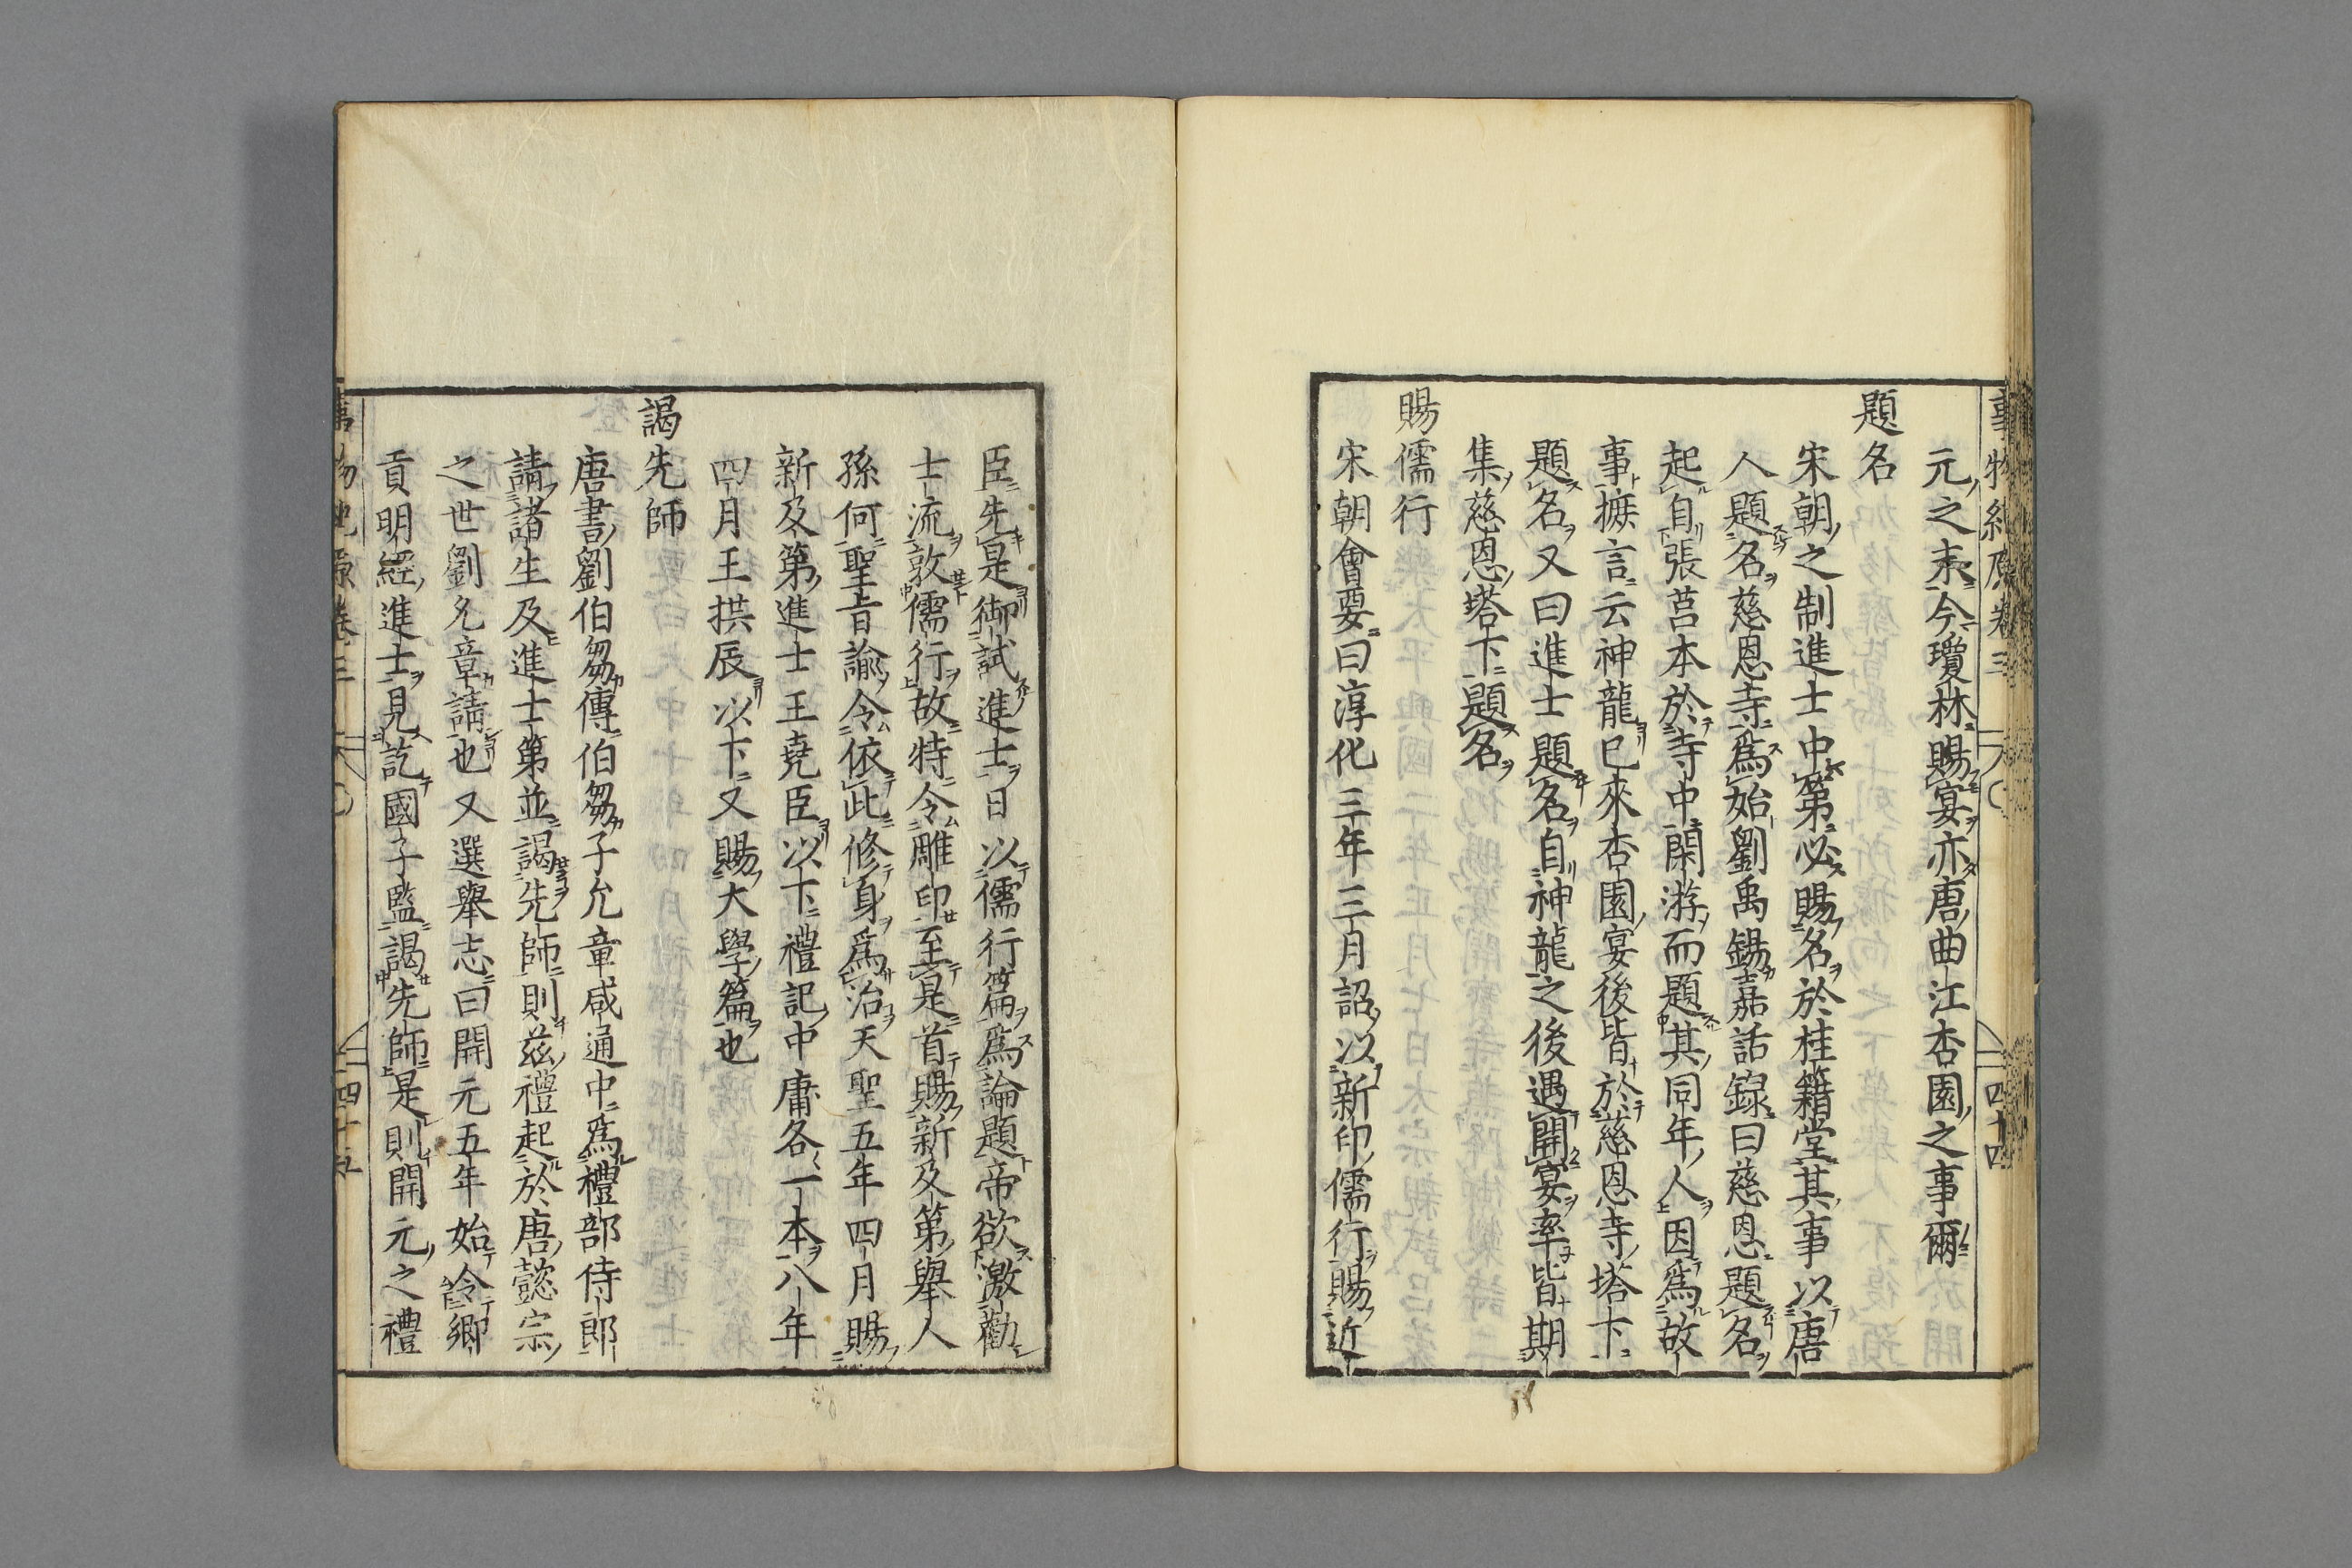 事物紀原卷三 四十四
元之末今瓊林賜宴亦唐曲江杏園之事爾
題名
宋朝之制進士中第必賜名於桂籍堂其事以唐
人題名慈恩寺爲始劉禹錫嘉話録曰慈恩題名
起自張莒本於寺中閑游而題其同年人因爲故
事摭言云神龍已來杏園宴後皆於慈恩寺塔下
題名又曰進士題名自神龍之後遇開宴率皆期
集慈恩塔下題名
賜儒行
宋朝會要曰淳化三年三月詔以新印儒行賜近
臣先是御試進士日以儒行篇爲論題帝欲激勸
士流敦儒行故特令雕印至是首賜新及第舉人
孫何聖旨諭令依此修身爲治天聖五年四月賜
新及第進士王堯臣以下禮記中庸各一本八年
四月王拱辰以下又賜大學篇也
謁先師
唐書劉伯芻傳伯芻子允章咸通中爲禮部侍郎
請諸生及進士第並謁先師則兹禮起於唐懿宗
之世劉允章請也又選舉志曰開元五年始令鄉
貢明經進士見訖國子監謁先師是則開元之禮
事物紀原卷三 四十五